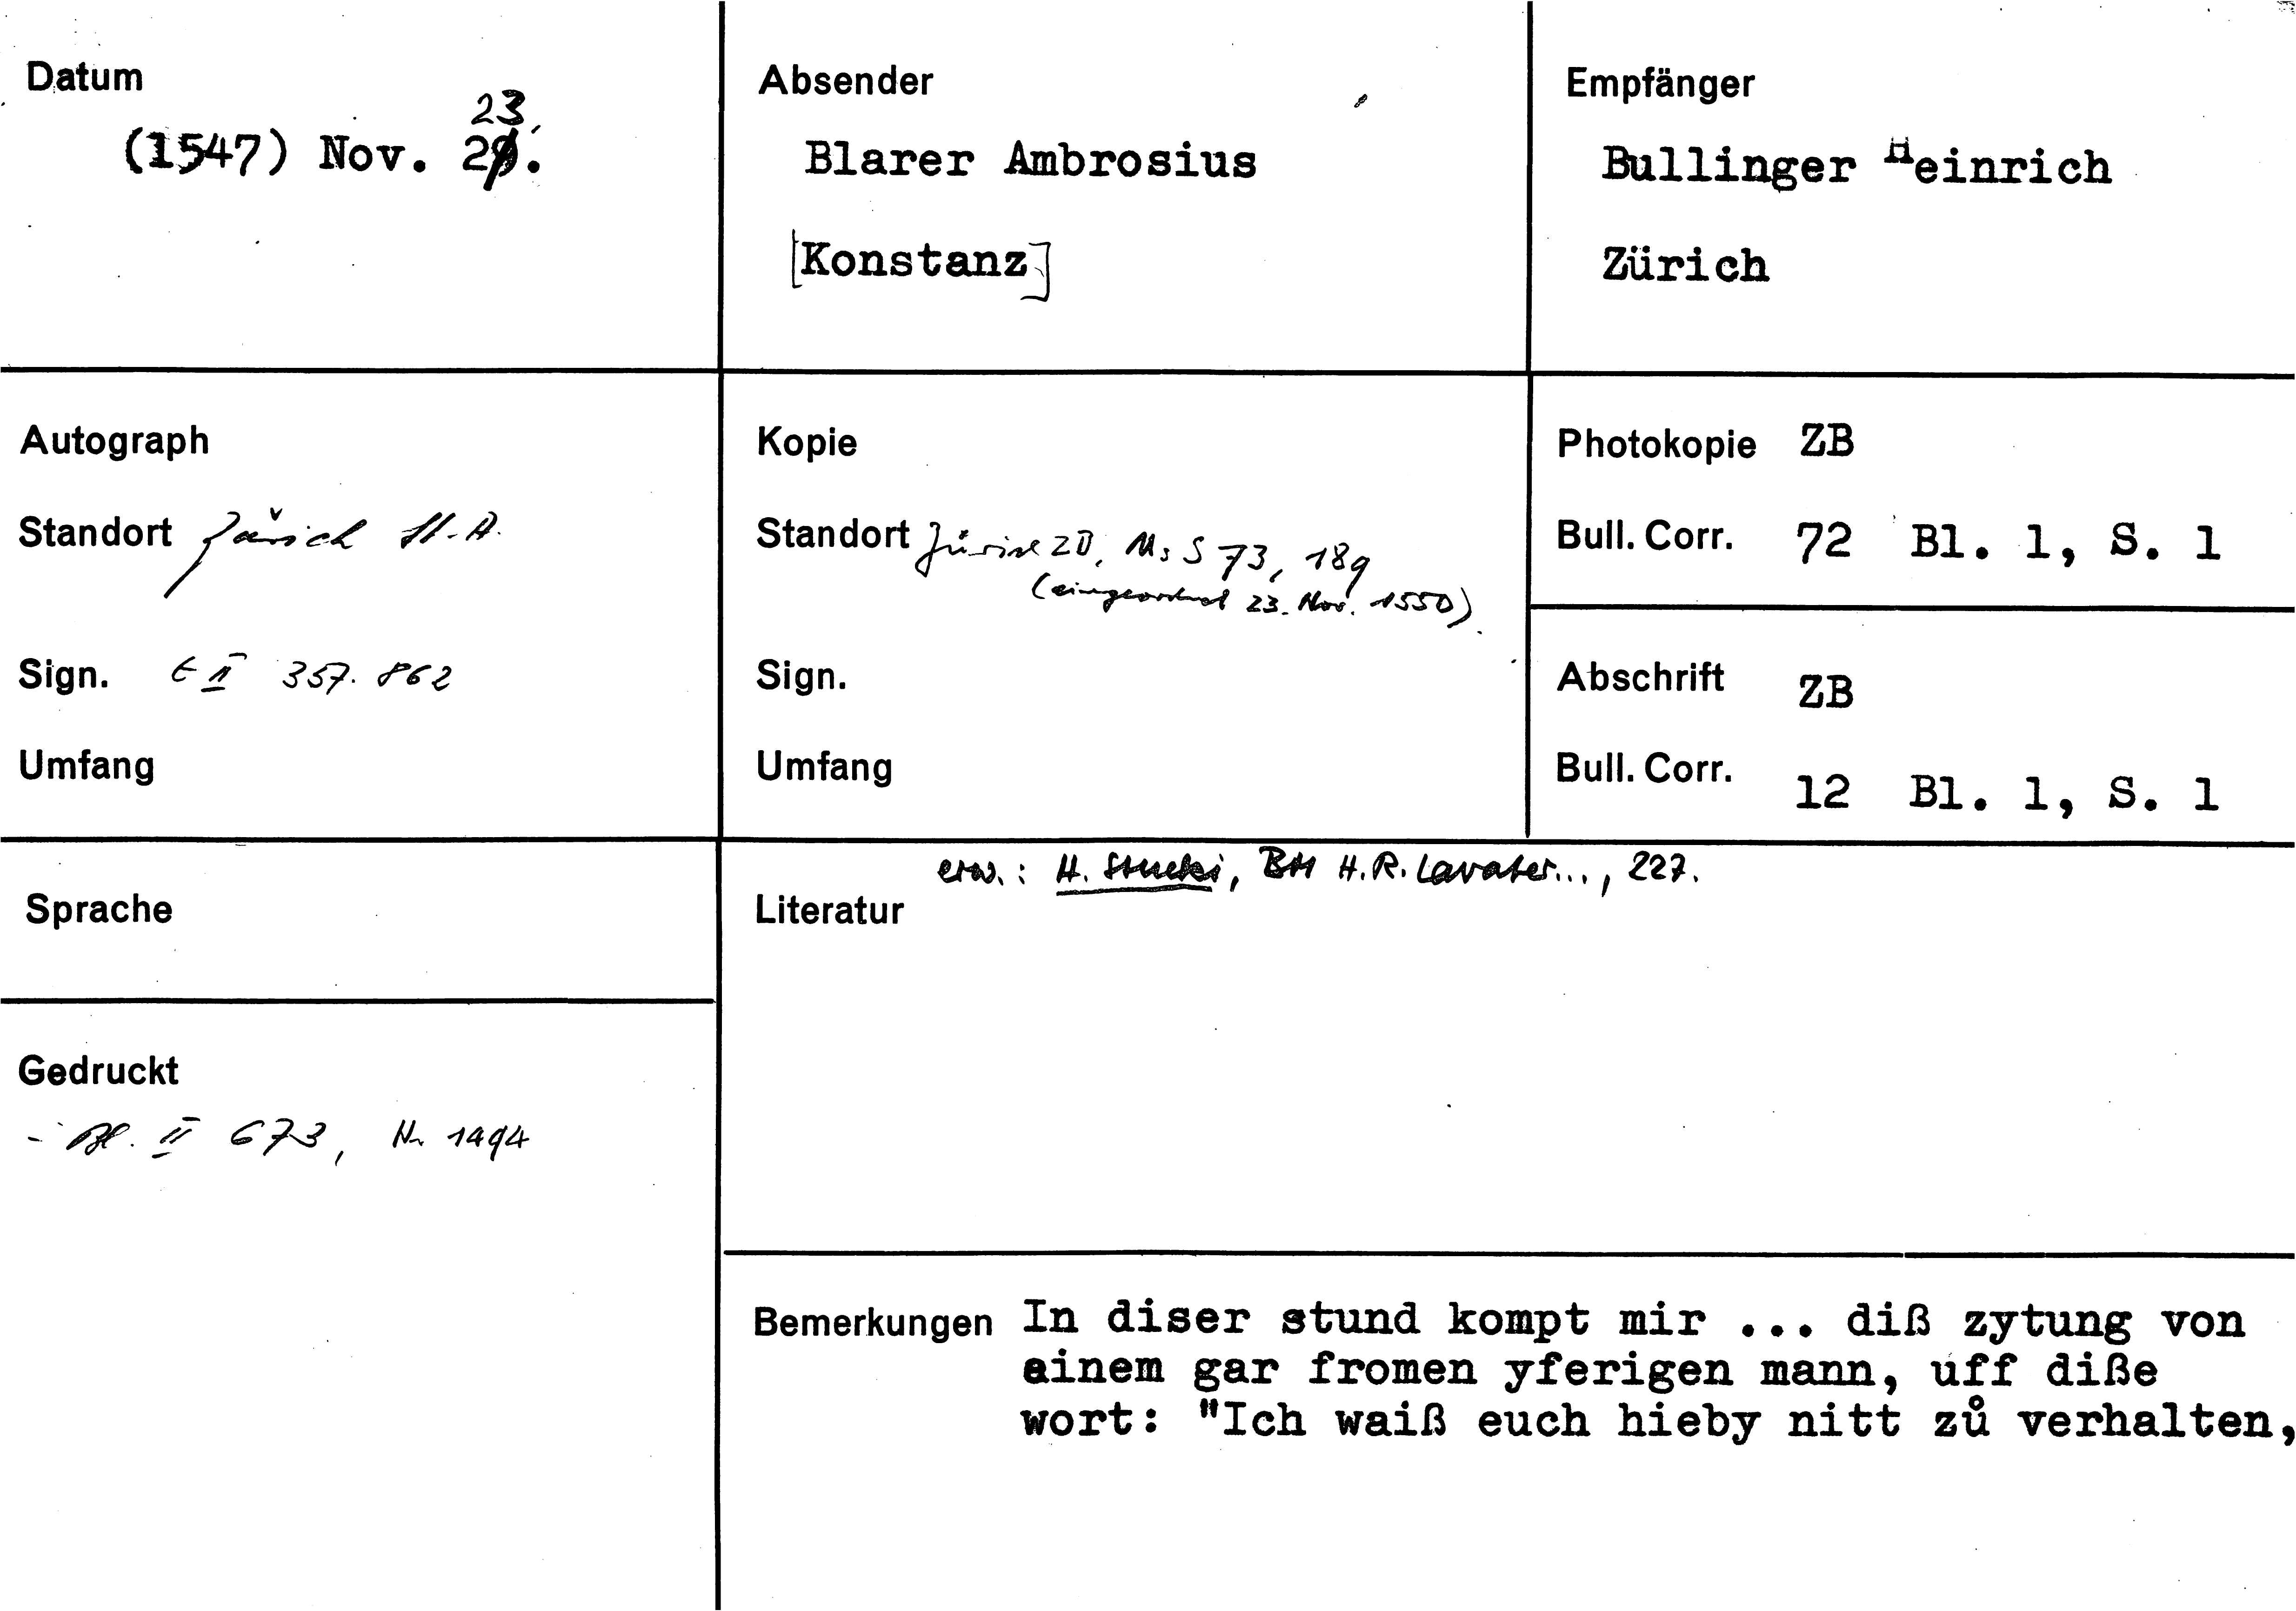 Datum
23.
(1547) Nov. 29.
Absender
Blarer Ambrosius
[Konstanz]
Empfänger
Bullinger Heinrich
Zürich
Autograph
Standort Zürich St. A.
Sign. E II 357. 862
Umfang
Kopie
Standort Zürich ZB, Ms S 73, 189
(eingeordnet 23. Nov. 1550)
Sign.
Umfang
Photokopie ZB
Bull. Corr. 72 Bl. 1, S. 1
Abschrift ZB
Bull. Corr. 12 Bl. 1, S. 1
Sprache
Gedruckt
- Bl. II 673, Nr 1494
erw.: H. Stucki, BM H.R. Lavater..., 227.
Literatur
Bemerkungen In diser stund kompt mir ... diß zytung von
einem gar fromen yferigen mann, uff diße
wort: "Ich waiß euch hieby nitt zů verhalten,